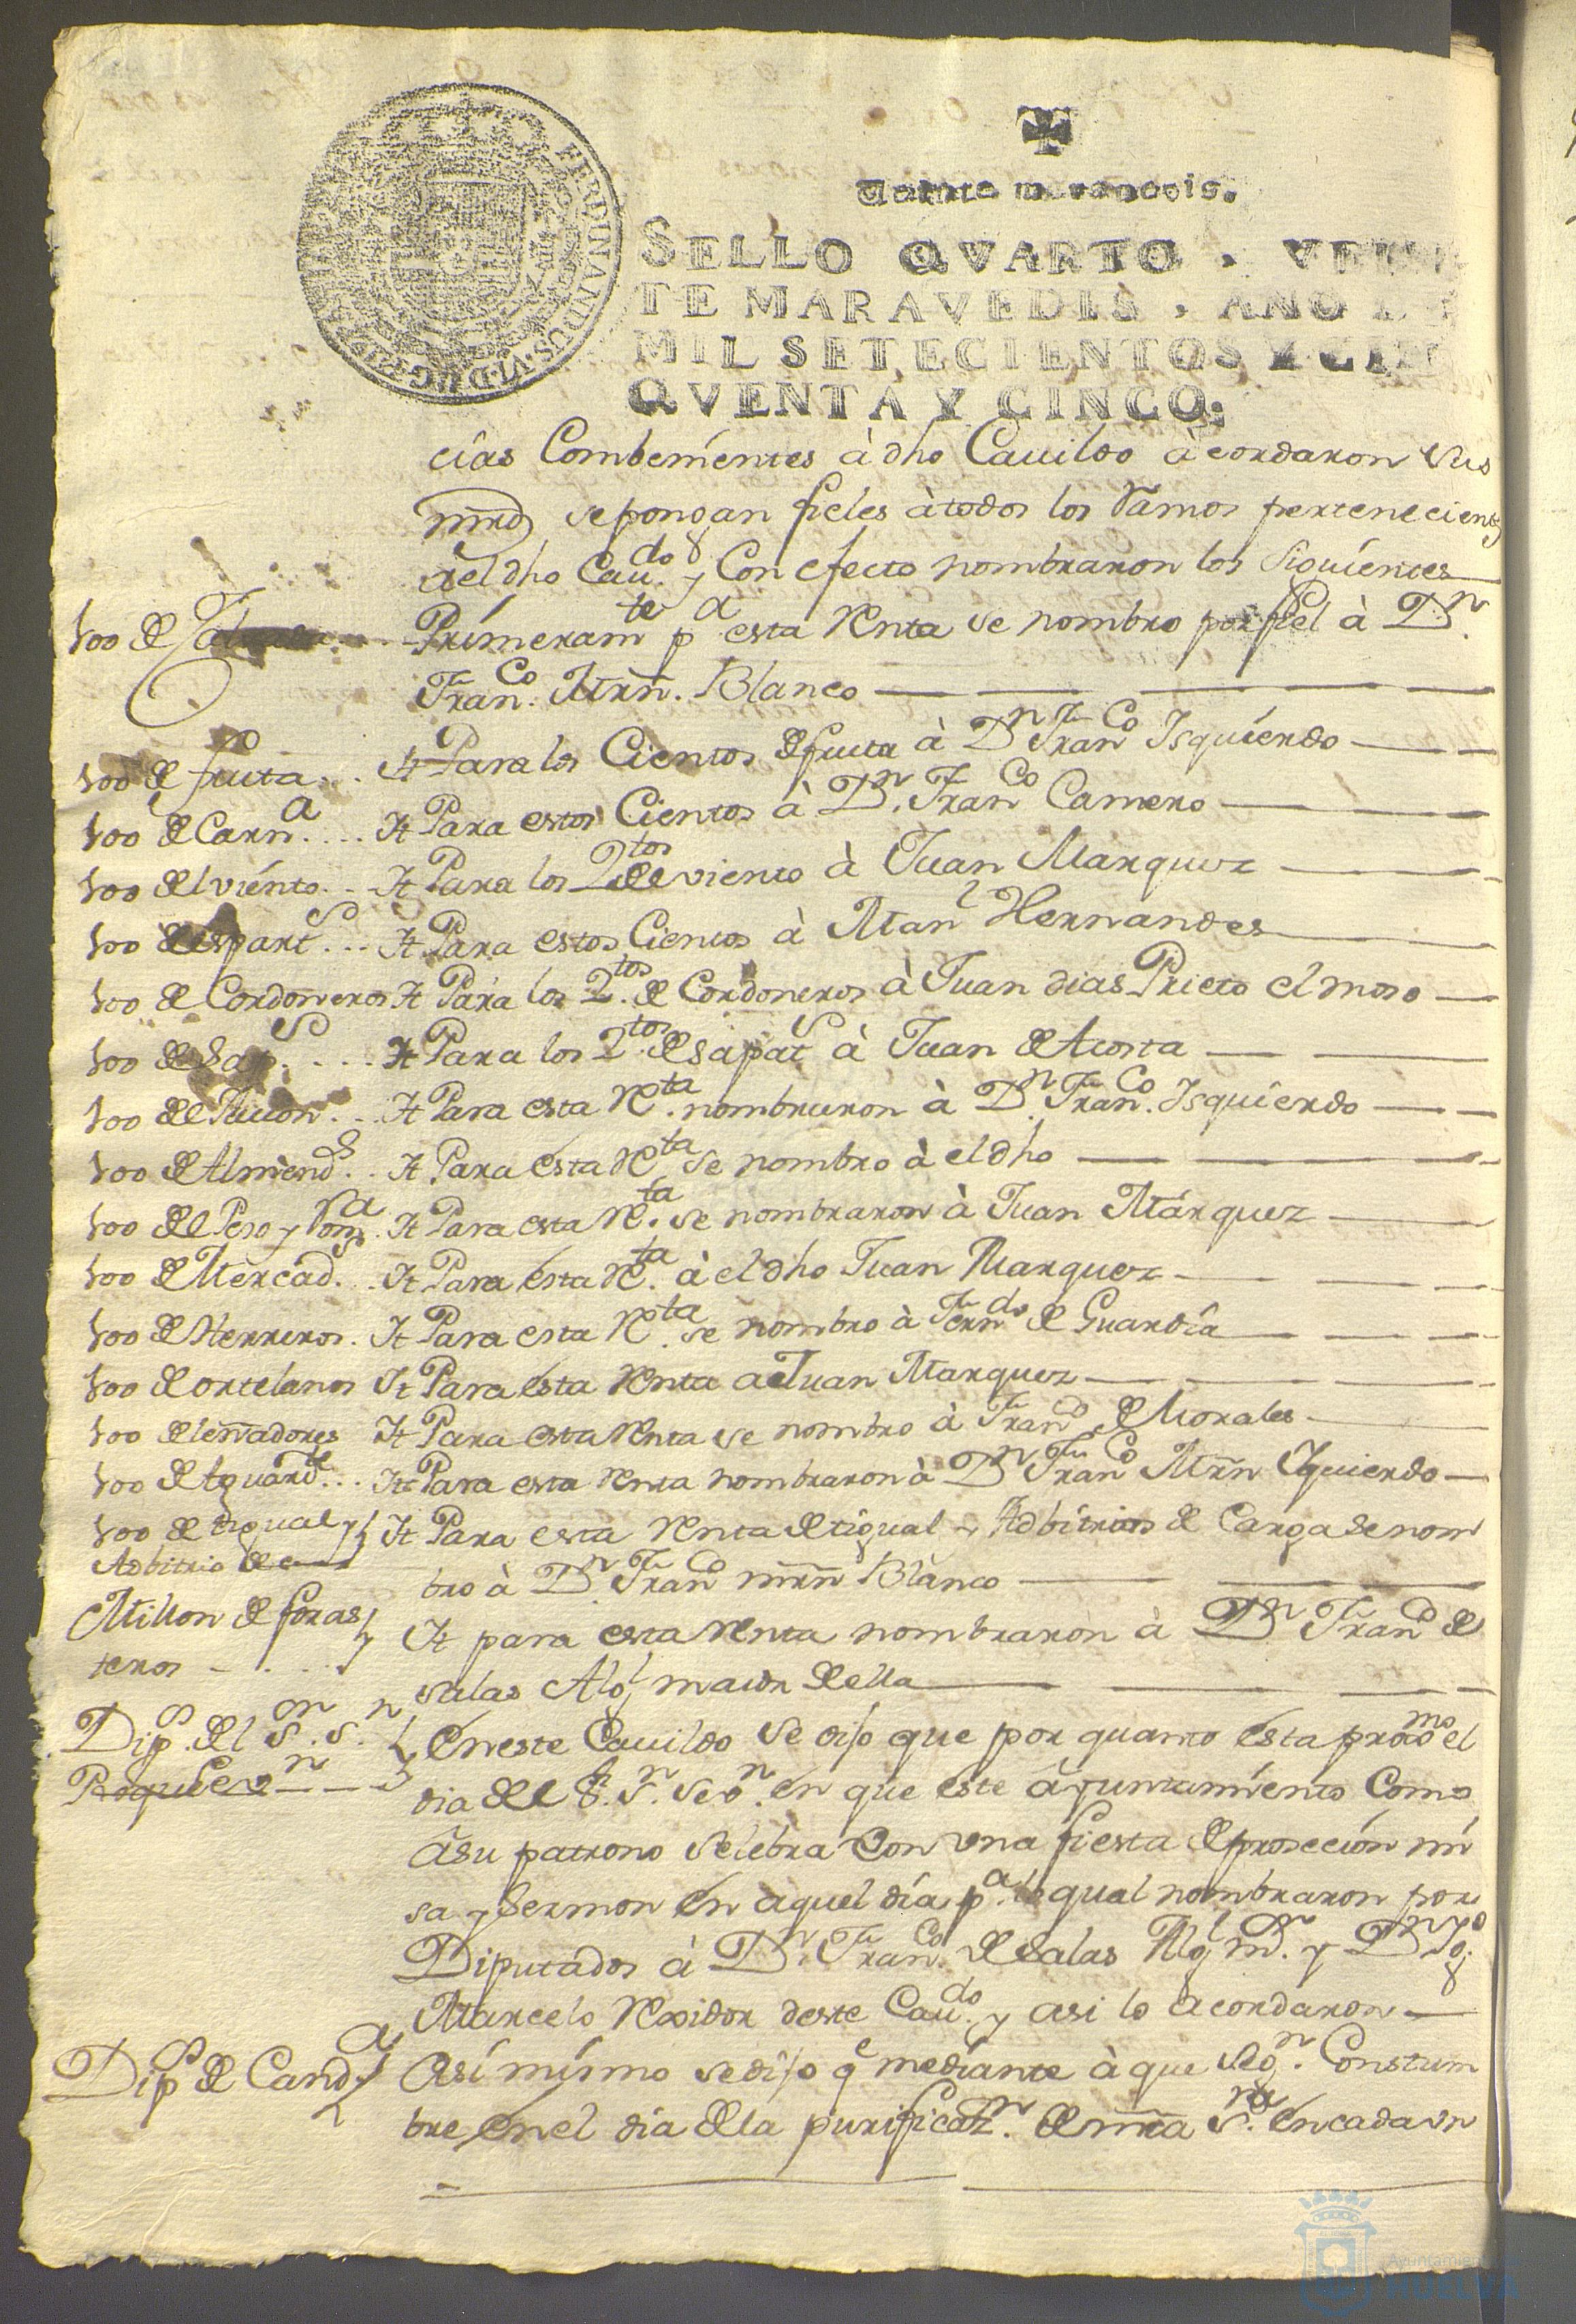 FERDINANDUS·VI·D·G·
Veinte maravedis.
SELLO QVARTO, VEIN
TE MARAVEDIS, AÑO DE
MIL SETECIENTOS Y CIN
QVENTA Y CINCO.
cias Combenientes à dho Cauildo àcordaron sus
mrds se pongan fieles àtodos los Ramos pertenecientes
a el dho Cau.do y Con efecto nombraron los siguientes
100 de Primeram.te p.a esta Renta se nombro por fiel à D.n
Fran.co Mrn. Blanco
100 de fruta... It Para los Cientos de fruta à D.n Fran.co Isquierdo
100 de Carn.a.... It Para estos Cientos à D.n Fran.co Camero
100 del viento.. It Para los 2.tos de viento à Juan Marquez
100 de espart.o... It Para estos Cientos à Man.l Hernandes
100 de Cordoneros It Para los 2.tos de Cordoneros à Juan dias Prieto el moso
100 de Sap.o.... It Para los 2.tos de sapat.o à Juan de Acosta
100 de It Para esta R.ta nombraron à D.n Fran.co Isquierdo
100 de Almend.s.. It Para esta R.ta se nombro à el dho
100 de el Peso y Rom.a It Para esta R.ta se nombraron à Juan Márquez
100 de Mercad... It Para esta R.ta à el dho Juan Marquez
100 de Herreros. It Para esta R.ta se nombro à Fern.do de Guardia
100 de ortelanos It Para esta Renta a Juan Marquez
100 de leñadores It Para esta Renta se nombro à Fran.co de Morales
100 de Aguard.te... It Para esta Renta nombraron à D.n Fran.co Mrn Yquierdo
100 de tigual y It Para esta Renta de tigual y Adbitrios de Carga se nom
Adbitrio de
bro à D.n Fran.co mrn Blanco
Millon de foras
teros It para esta Renta nombraron à D.n Fran.co de
salas Alg.l maior de ella
Dip.s de el S.r S.n
Roque En este Cauildo se dijo que por quanto esta proxmo el
dia de el S.r S.n Seo.n en que este àyuntamiento Como
à su patrono selebra Con una fiesta de prosecion mi
sa y Sermon en aquel dia p.a lo qual nombraron por
Diputados à D.n Fran.co de Salas Alg.l m.r y D.n
Marcelo Rexidor deste Cau.do y asi lo acordaron
Dip.s de Cand.a Asi mismo se dijo q.e mediante à que seg.n Constum
bre en el dia de la purificaz.n de nra S.ra en cada un
Ayuntamiento
HUELVA